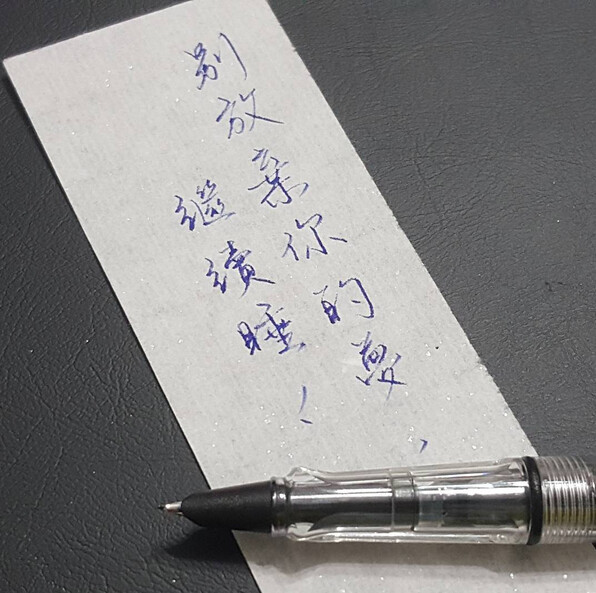 別放棄你的夢，
繼續睡！